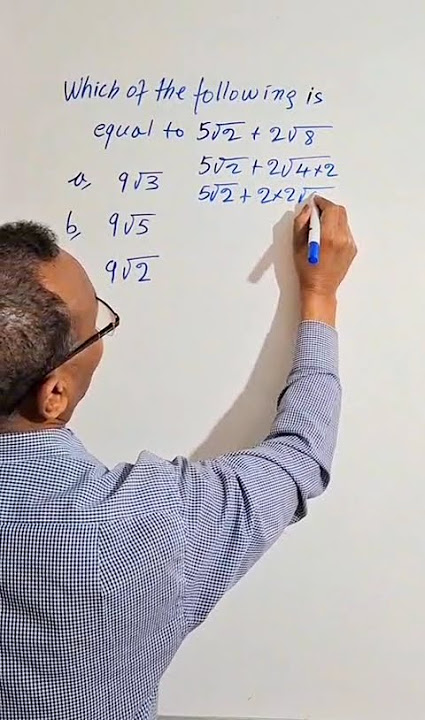 Which of the following is
equal to 5√2 + 2√8
a, 9√3
b, 9√5
9√2
5√2 + 2√4×2
5√2 + 2×2√